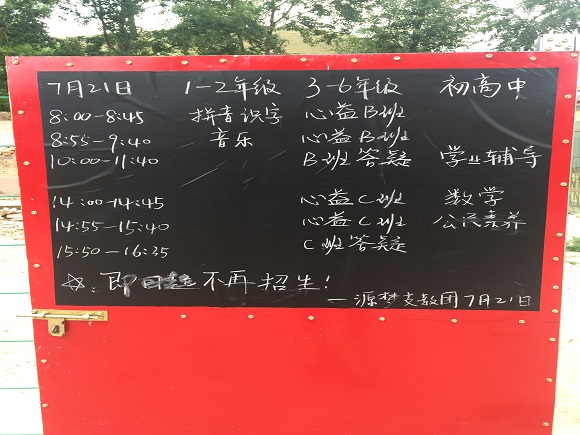 7月21日 1-2年级 3-6年级 初高中
8:00-8:45 拼音识字 心益B班
8:55-9:40 音乐 心益B班
10:00-11:40 B班答疑 学业辅导
14:00-14:45 心益C班 数学
14:55-15:40 心益C班 公民素养
15:50-16:35 C班答疑
☆:即日起不再招生!
—源梦支教团7月21日